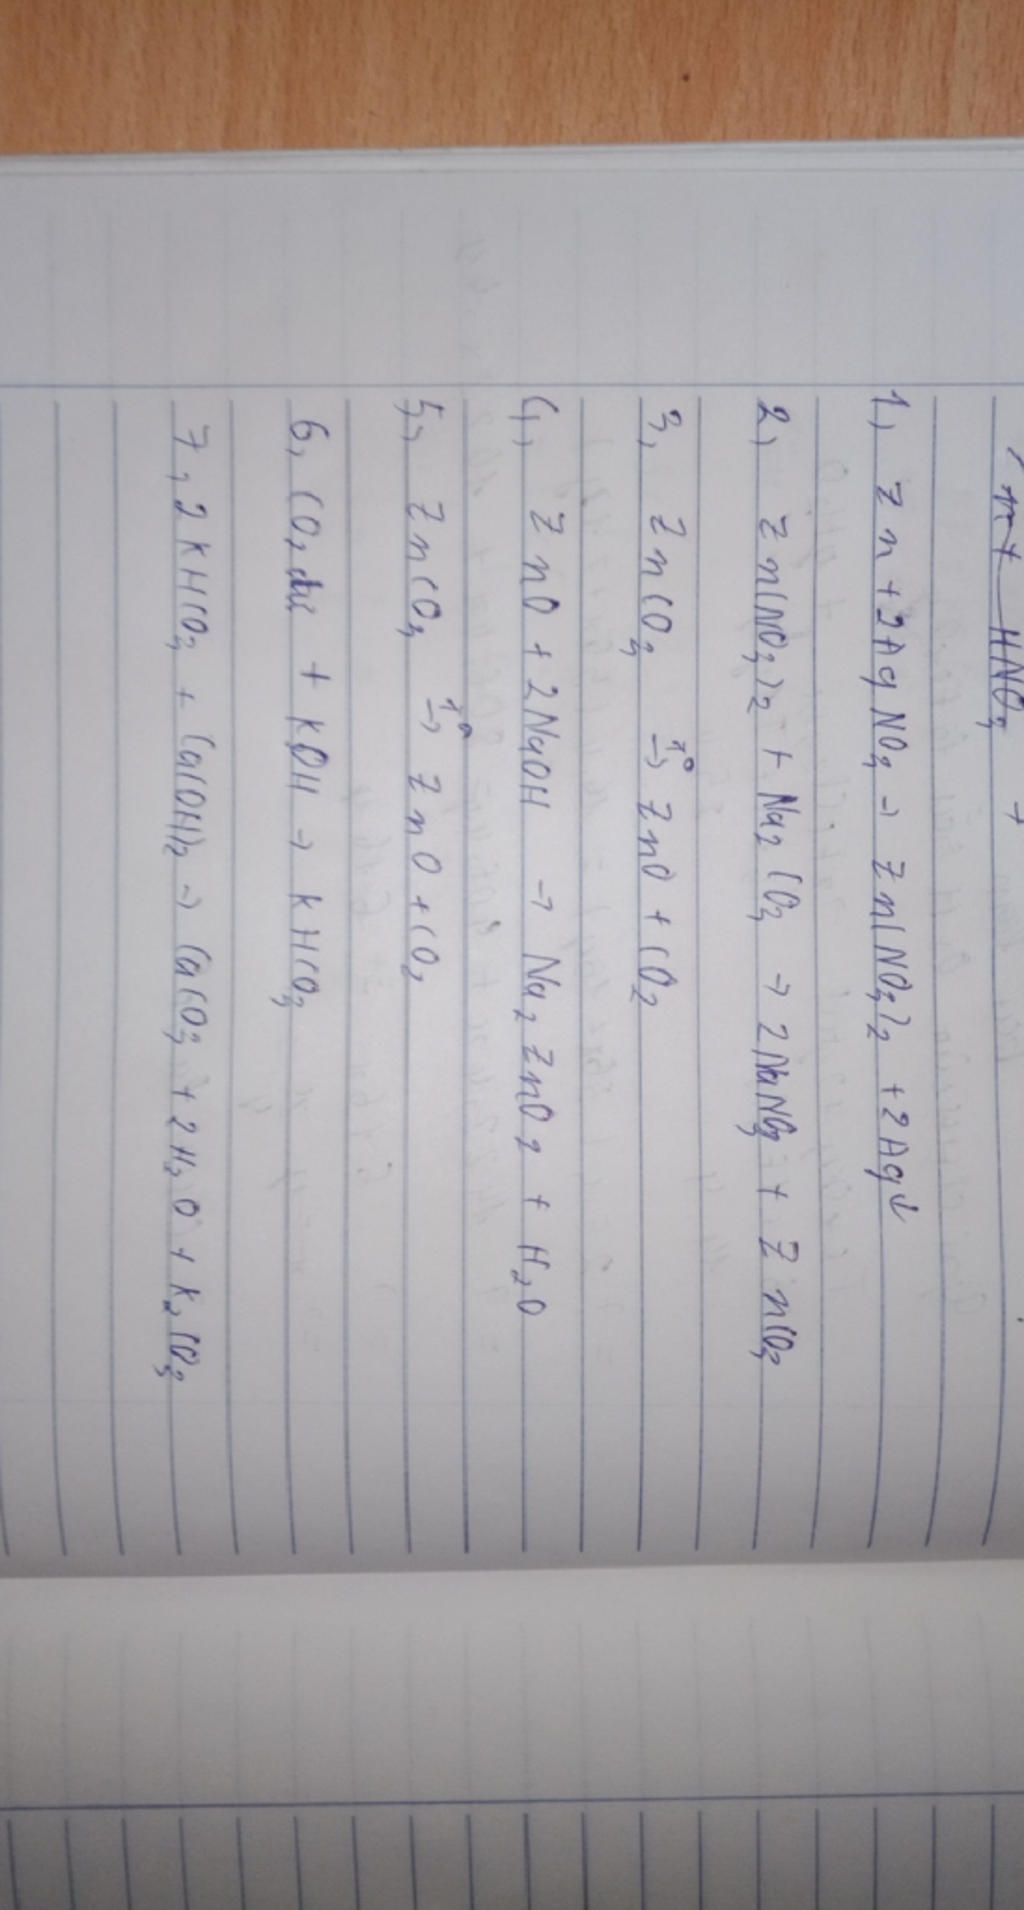 HNO₃ +
1, Zn + 2AgNO₃ → Zn(NO₃)₂ + 2Ag↓
2, Zn(NO₃)₂ + Na₂CO₃ → 2NaNO₃ + ZnCO₃
3, ZnCO₃ →ᵗ° ZnO + CO₂
4, ZnO + 2NaOH → Na₂ZnO₂ + H₂O
5, ZnCO₃ →ᵗ° ZnO + CO₂
6, CO₂ dư + KOH → KHCO₃
7, 2KHCO₃ + Ca(OH)₂ → CaCO₃ + 2H₂O + K₂CO₃